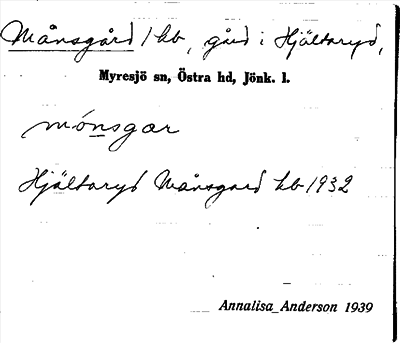 Månsgård 1 kb, gård i Hjältaryd,
Myresjö sn, Östra hd, Jönk. l.
mónsgar
Hjältaryd Månsgård kb 1932
Annalisa Anderson 1939